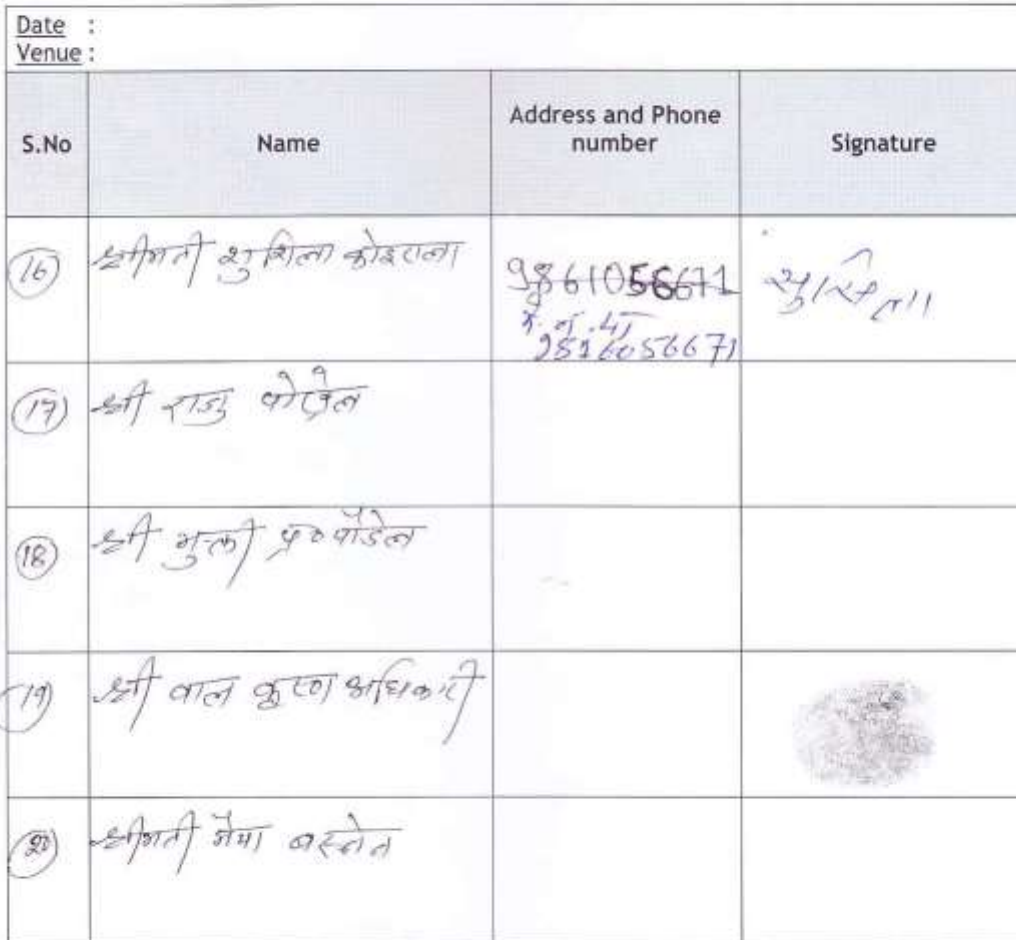 Date :
Venue :
S.No Name Address and Phone number Signature
16 श्रीमती शुशिला कोइराला 9861056671 सुसिला
9816056671
17 श्री राजु पोख्रेल
18 श्री मुक्ती प्र० पौडेल
19 श्री वाल कृष्ण अधिकारी
20 श्रीमती मैया बस्नेत